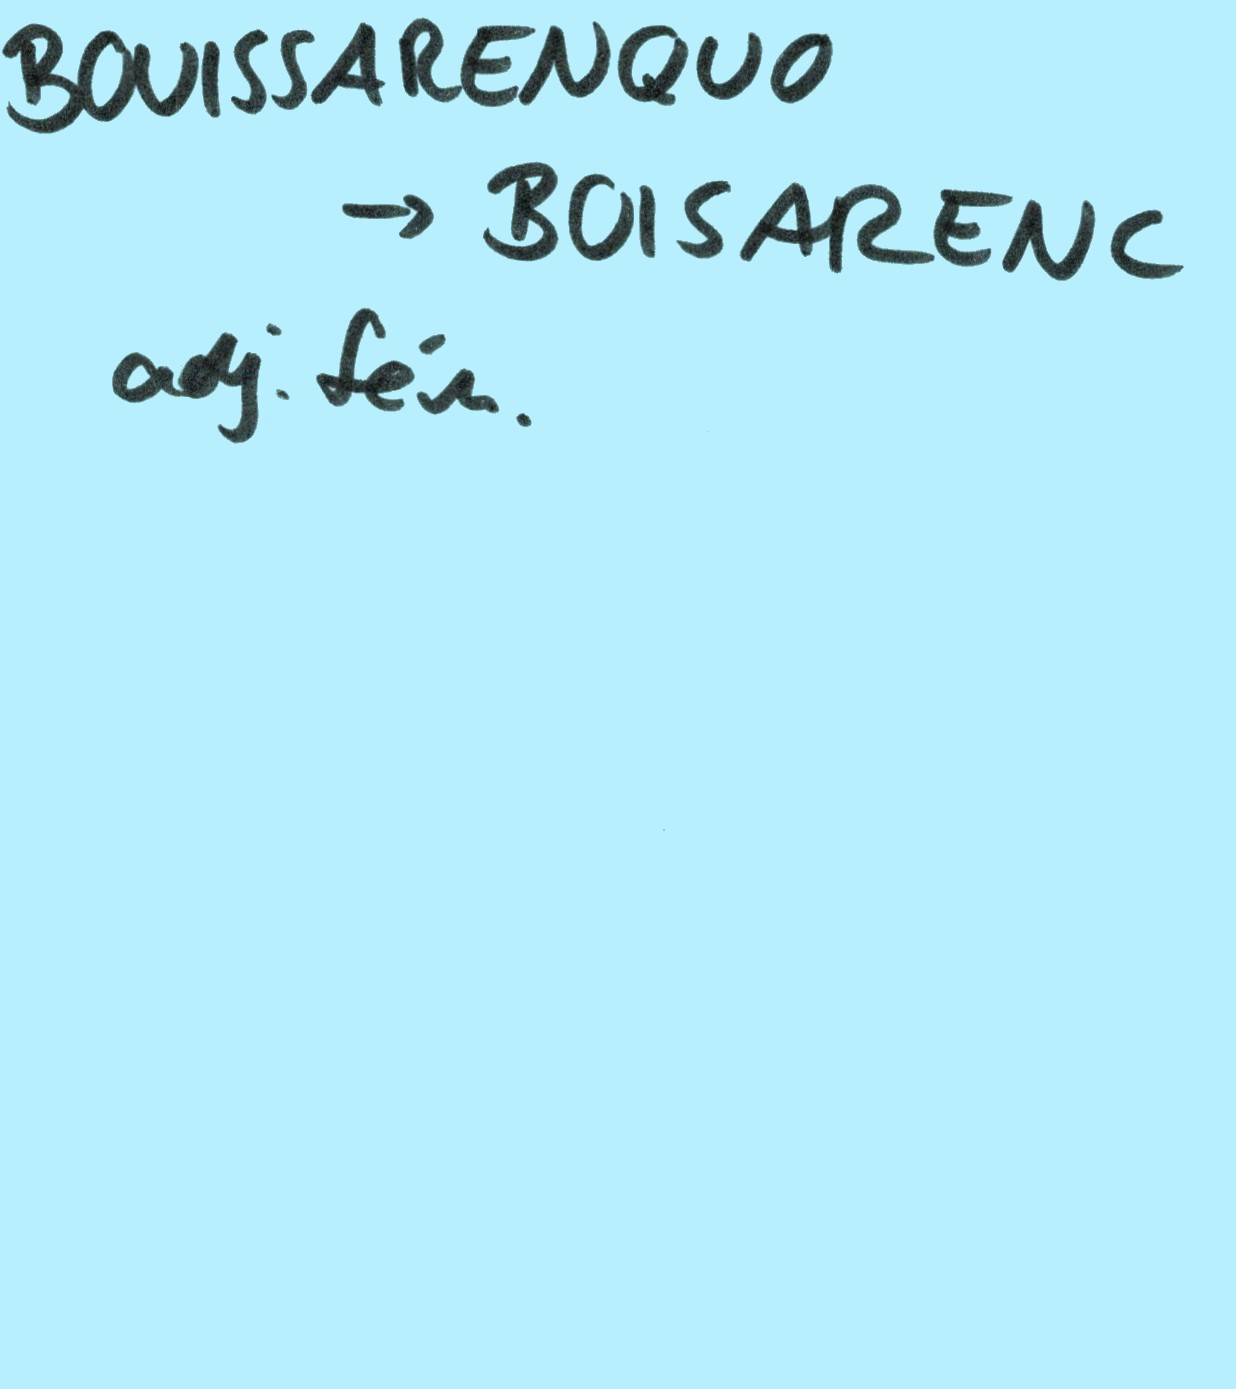 BOUISSARENQUO
→ BOISARENC
adj. fém.